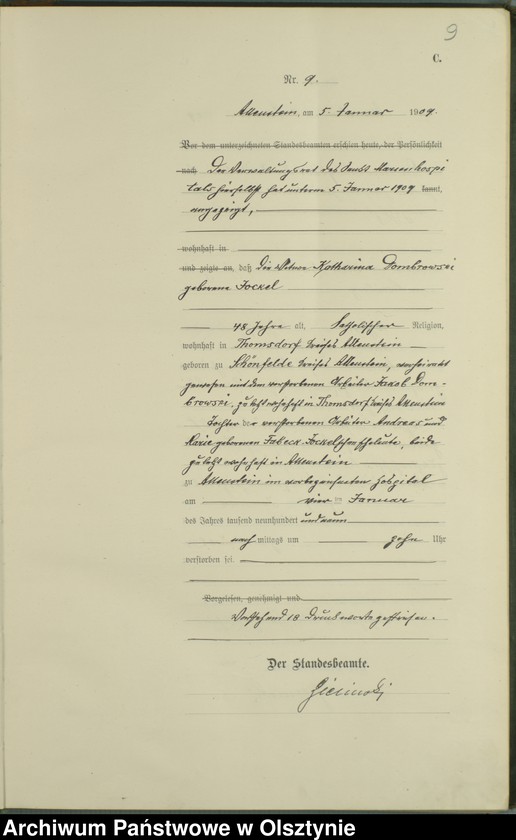 9
C.
Nr. 9.
Allenstein, am 5. Januar 1909.
Vor dem unterzeichneten Standesbeamten erschien heute, der Persönlichkeit
nach Der Verwaltungsrat des Marienhospi
tals hierselbst hat unterm 5. Januar 1909 kannt,
angezeigt,
wohnhaft in
und zeigte an, daß die Witwe Katharina Dombrowski
geborene Jockel
48 Jahre alt, katholischer Religion,
wohnhaft in Thomsdorf Kreises Allenstein
geboren zu Schönfelde Kreises Allenstein, verheiratet
gewesen mit dem verstorbenen Arbeiter Jakob Dom-
browski, zuletzt wohnhaft in Thomsdorf Kreises Allenstein
Tochter der verstorbenen Arbeiter Andreas und
geborenen Jockelschen Eheleute, beide
zuletzt wohnhaft in Allenstein
zu Allenstein im vorbezeichneten Hospital
am vier ten Januar
des Jahres tausend neunhundert und neun
nach mittags um zehn Uhr
verstorben sei.
Vorgelesen, genehmigt und
Vorstehend 18 Druckworte gestrichen.
Der Standesbeamte.
Archiwum Państwowe w Olsztynie